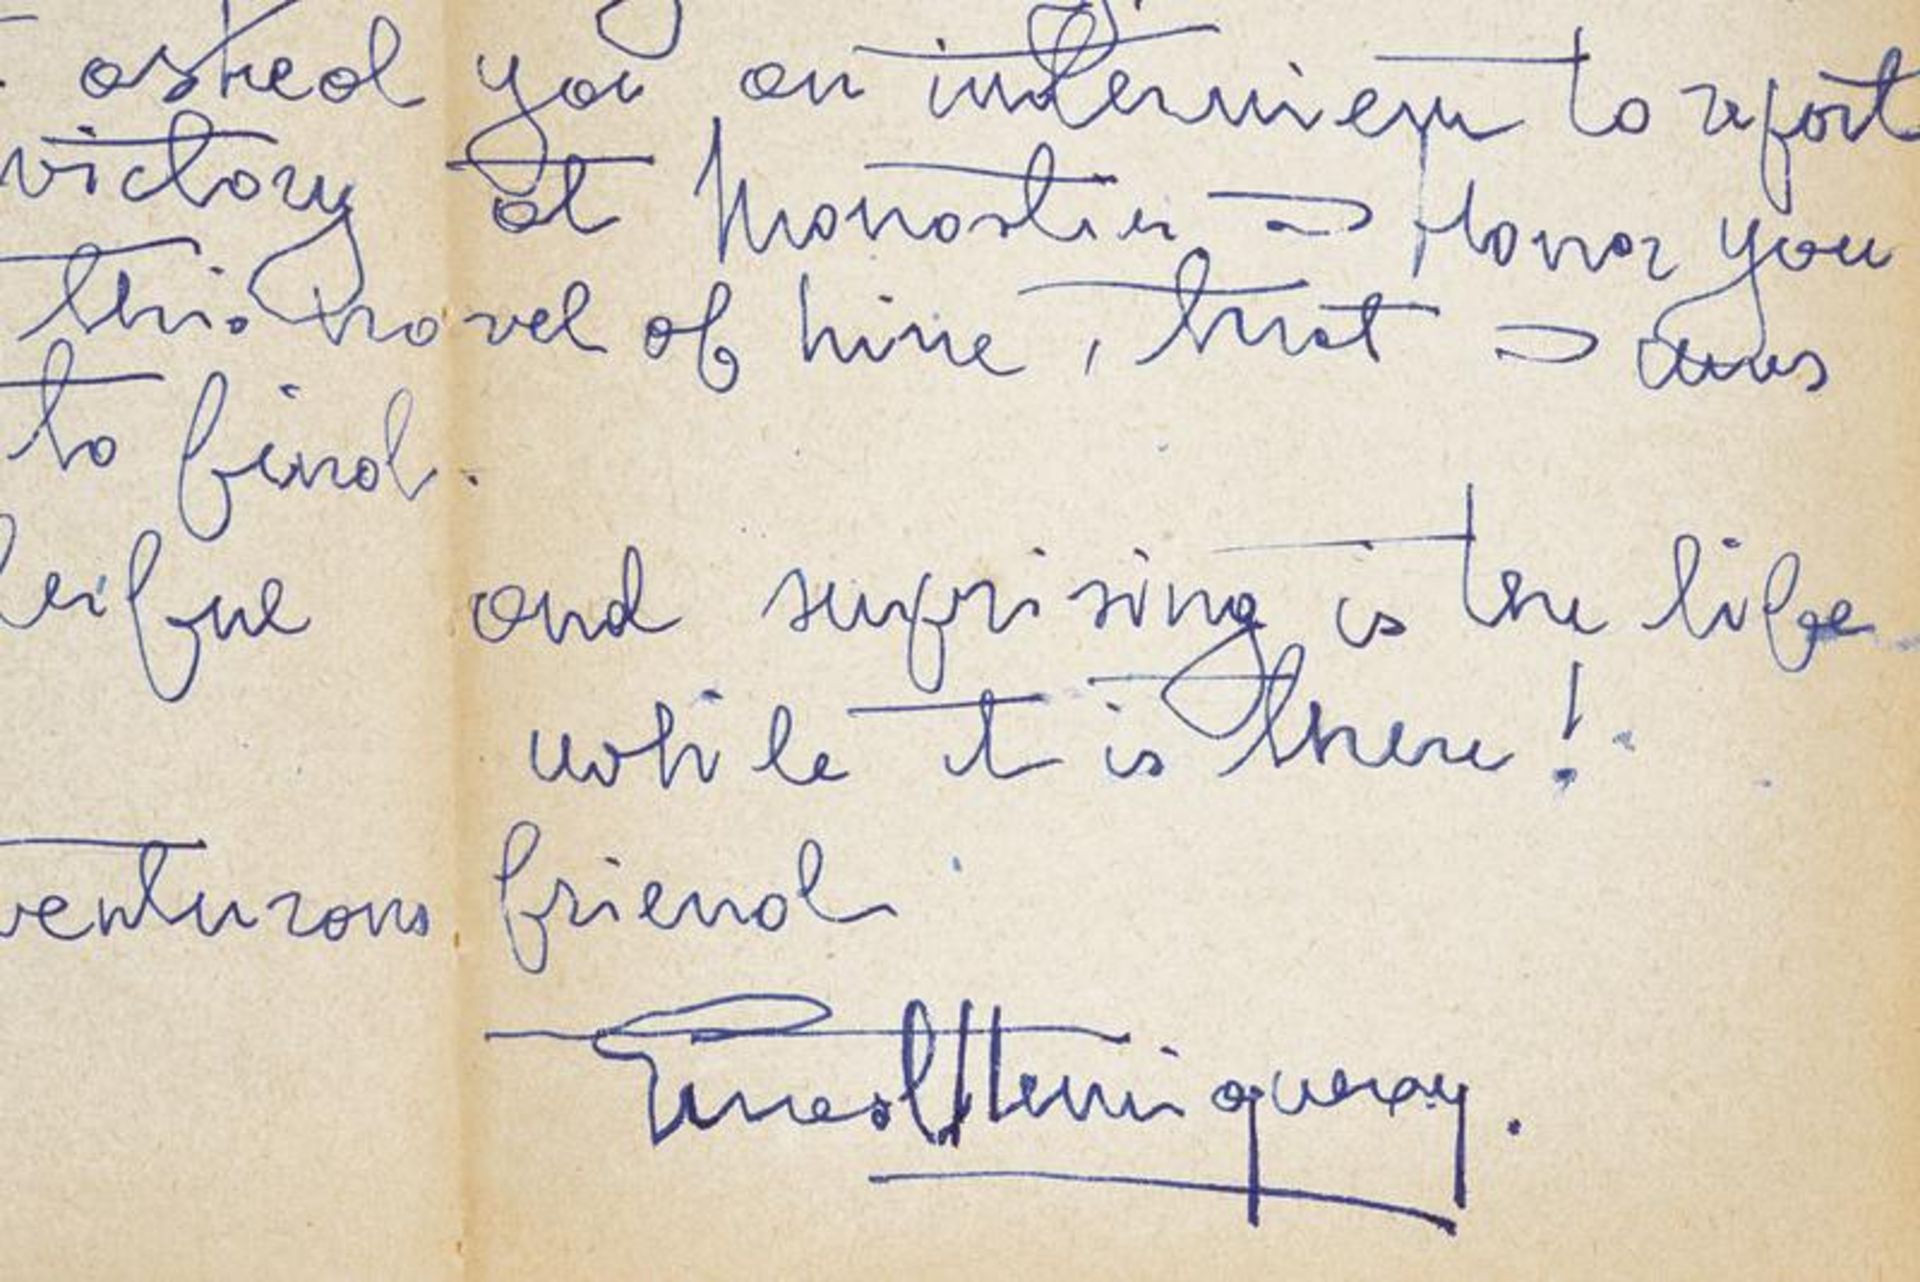 asked you an interview to report
victory at Monastir I Honor you
this novel of hine, that I
to find.
and suprising is the life
while it is there!
venturous friend
Ernest Hemingway.